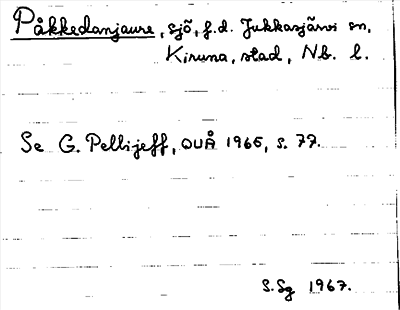 Påkkedanjaure, sjö, f.d. Jukkasjärvi sn,
Kiruna, stad, Nb. l.
Se G. Pellijeff, OUÅ 1965, s. 77.
S.Sg 1967.